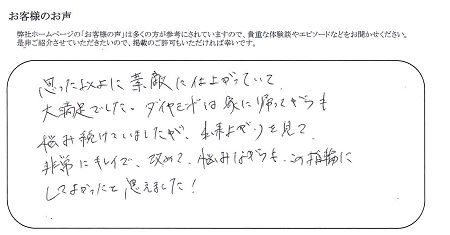 お客様のお声
弊社ホームページの「お客様の声」は多くの方が参考にされていますので、貴重な体験談やエピソードなどをお聞かせください。
是非ご紹介させていただきたいので、掲載のご許可もいただければ幸いです。
思ったよりに素敵に仕上がっていて
大満足でした。ダイヤモンドは家に帰ってからも
悩み続けていましたが、出来上がりを見て
非常にキレイで、改めて、悩みながらも、この指輪に
してよかったと思えました!